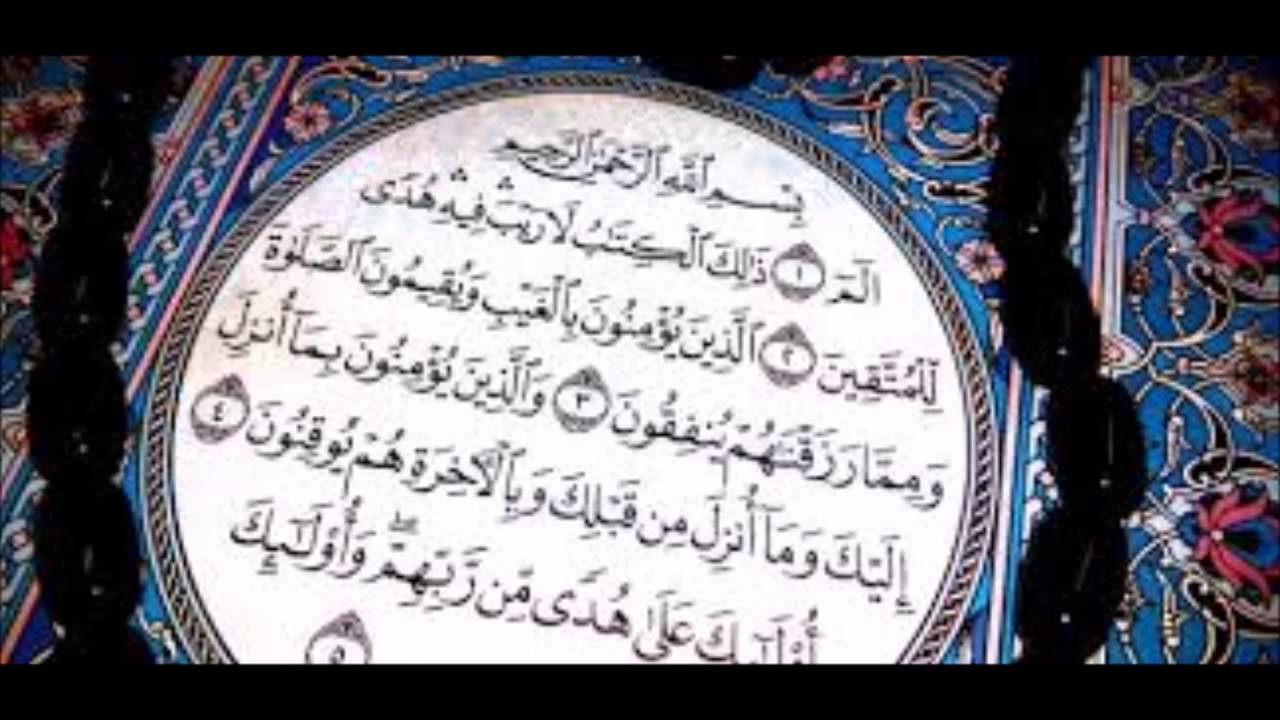 بِسْمِ ٱللَّهِ ٱلرَّحْمَٰنِ ٱلرَّحِيمِ
الٓمٓ ١ ذَٰلِكَ ٱلْكِتَٰبُ لَا رَيْبَ ۛ فِيهِ ۛ هُدًى
لِّلْمُتَّقِينَ ٢ ٱلَّذِينَ يُؤْمِنُونَ بِٱلْغَيْبِ وَيُقِيمُونَ ٱلصَّلَوٰةَ
وَمِمَّا رَزَقْنَٰهُمْ يُنفِقُونَ ٣ وَٱلَّذِينَ يُؤْمِنُونَ بِمَآ أُنزِلَ
إِلَيْكَ وَمَآ أُنزِلَ مِن قَبْلِكَ وَبِٱلْءَاخِرَةِ هُمْ يُوقِنُونَ ٤
أُو۟لَٰٓئِكَ عَلَىٰ هُدًى مِّن رَّبِّهِمْ ۖ وَأُو۟لَٰٓئِكَ
٥